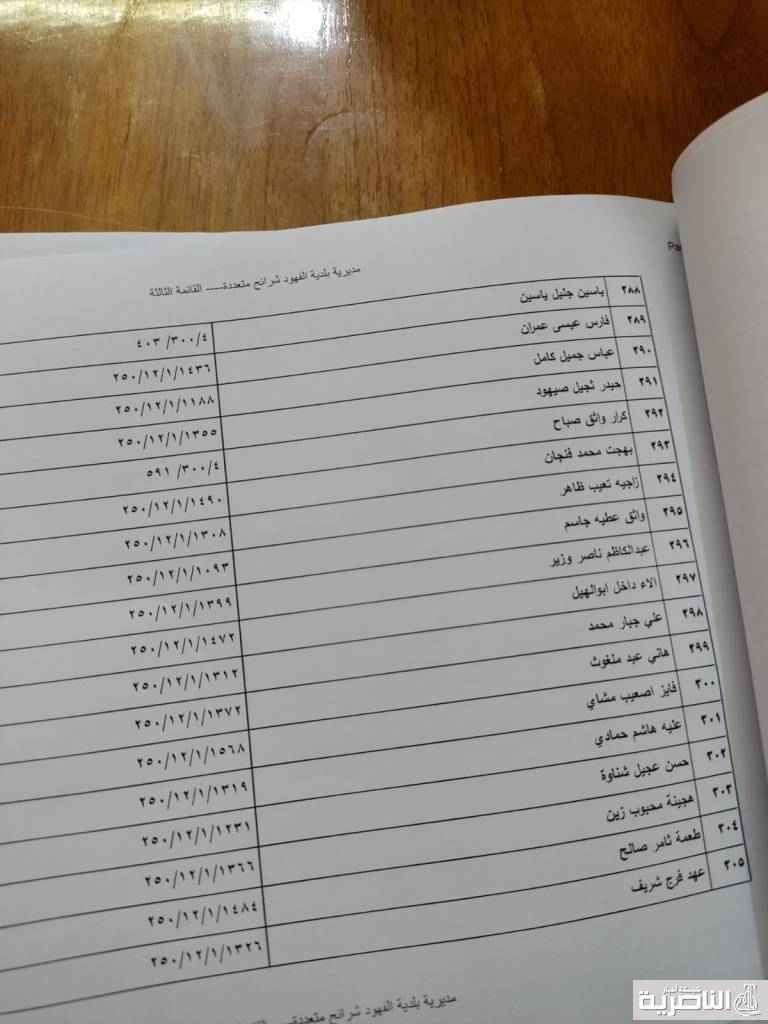 Pa
مديرية بلدية الفهود شرائح متعددة---- القائمة الثالثة
٢٨٨ ياسين جليل ياسين ٤٠٣ /٣٠٠/٤
٢٨٩ فارس عيسى عمران ٢٥٠/١٢/١/١٤٣٦
٢٩٠ عباس جميل كامل ٢٥٠/١٢/١/١١٨٨
٢٩١ حيدر ثجيل صيهود ٢٥٠/١٢/١/١٣٥٥
٢٩٢ كرار واثق صباح ٥٩١ /٣٠٠/٤
٢٩٣ بهجت محمد فنجان ٢٥٠/١٢/١/١٤٩٠
٢٩٤ زاجيه تعيب ظاهر ٢٥٠/١٢/١/١٣٠٨
٢٩٥ واثق عطيه جاسم ٢٥٠/١٢/١/١٠٩٣
٢٩٦ عبدالكاظم ناصر وزير ٢٥٠/١٢/١/١٣٩٩
٢٩٧ الاء داخل ابوالهيل ٢٥٠/١٢/١/١٤٧٢
٢٩٨ علي جبار محمد ٢٥٠/١٢/١/١٣١٢
٢٩٩ هاني عبد ملغوث ٢٥٠/١٢/١/١٣٧٢
٣٠٠ فايز اصعيب مشاي ٢٥٠/١٢/١/١٥٦٨
٣٠١ عليه هاشم حمادي ٢٥٠/١٢/١/١٣١٩
٣٠٢ حسن عجيل شناوة ٢٥٠/١٢/١/١٢٣١
٣٠٣ هجينة محبوب زين ٢٥٠/١٢/١/١٣٦٦
٣٠٤ طعمة ثامر صالح ٢٥٠/١٢/١/١٤٨٤
٣٠٥ عهد فرج شريف ٢٥٠/١٢/١/١٣٢٦
مديرية بلدية الفهود شرائح متعددة----
شبكة أخبار
الناصرية